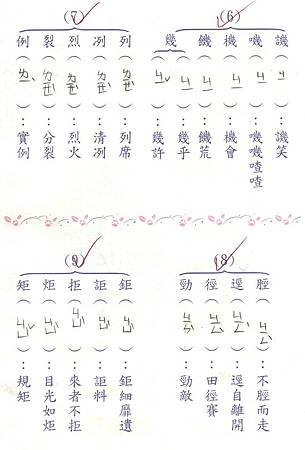 (6)
譏(ㄐㄧ):譏笑
嘰(ㄐㄧ):嘰嘰喳喳
機(ㄐㄧ):機會
饑(ㄐㄧ):饑荒
幾(ㄐㄧ):幾乎
(ㄐㄧˇ):幾許
(7)
列(ㄌㄧㄝˋ):列席
冽(ㄌㄧㄝˋ):清冽
烈(ㄌㄧㄝˋ):烈火
裂(ㄌㄧㄝˋ):分裂
例(ㄌㄧˋ):實例
(8)
脛(ㄐㄧㄥˋ):不脛而走
逕(ㄐㄧㄥˋ):逕自離開
徑(ㄐㄧㄥˋ):田徑賽
勁(ㄐㄧㄥˋ):勁敵
(9)
鉅(ㄐㄩˋ):鉅細靡遺
詎(ㄐㄩˋ):詎料
拒(ㄐㄩˋ):來者不拒
炬(ㄐㄩˋ):目光如炬
矩(ㄐㄩˇ):規矩